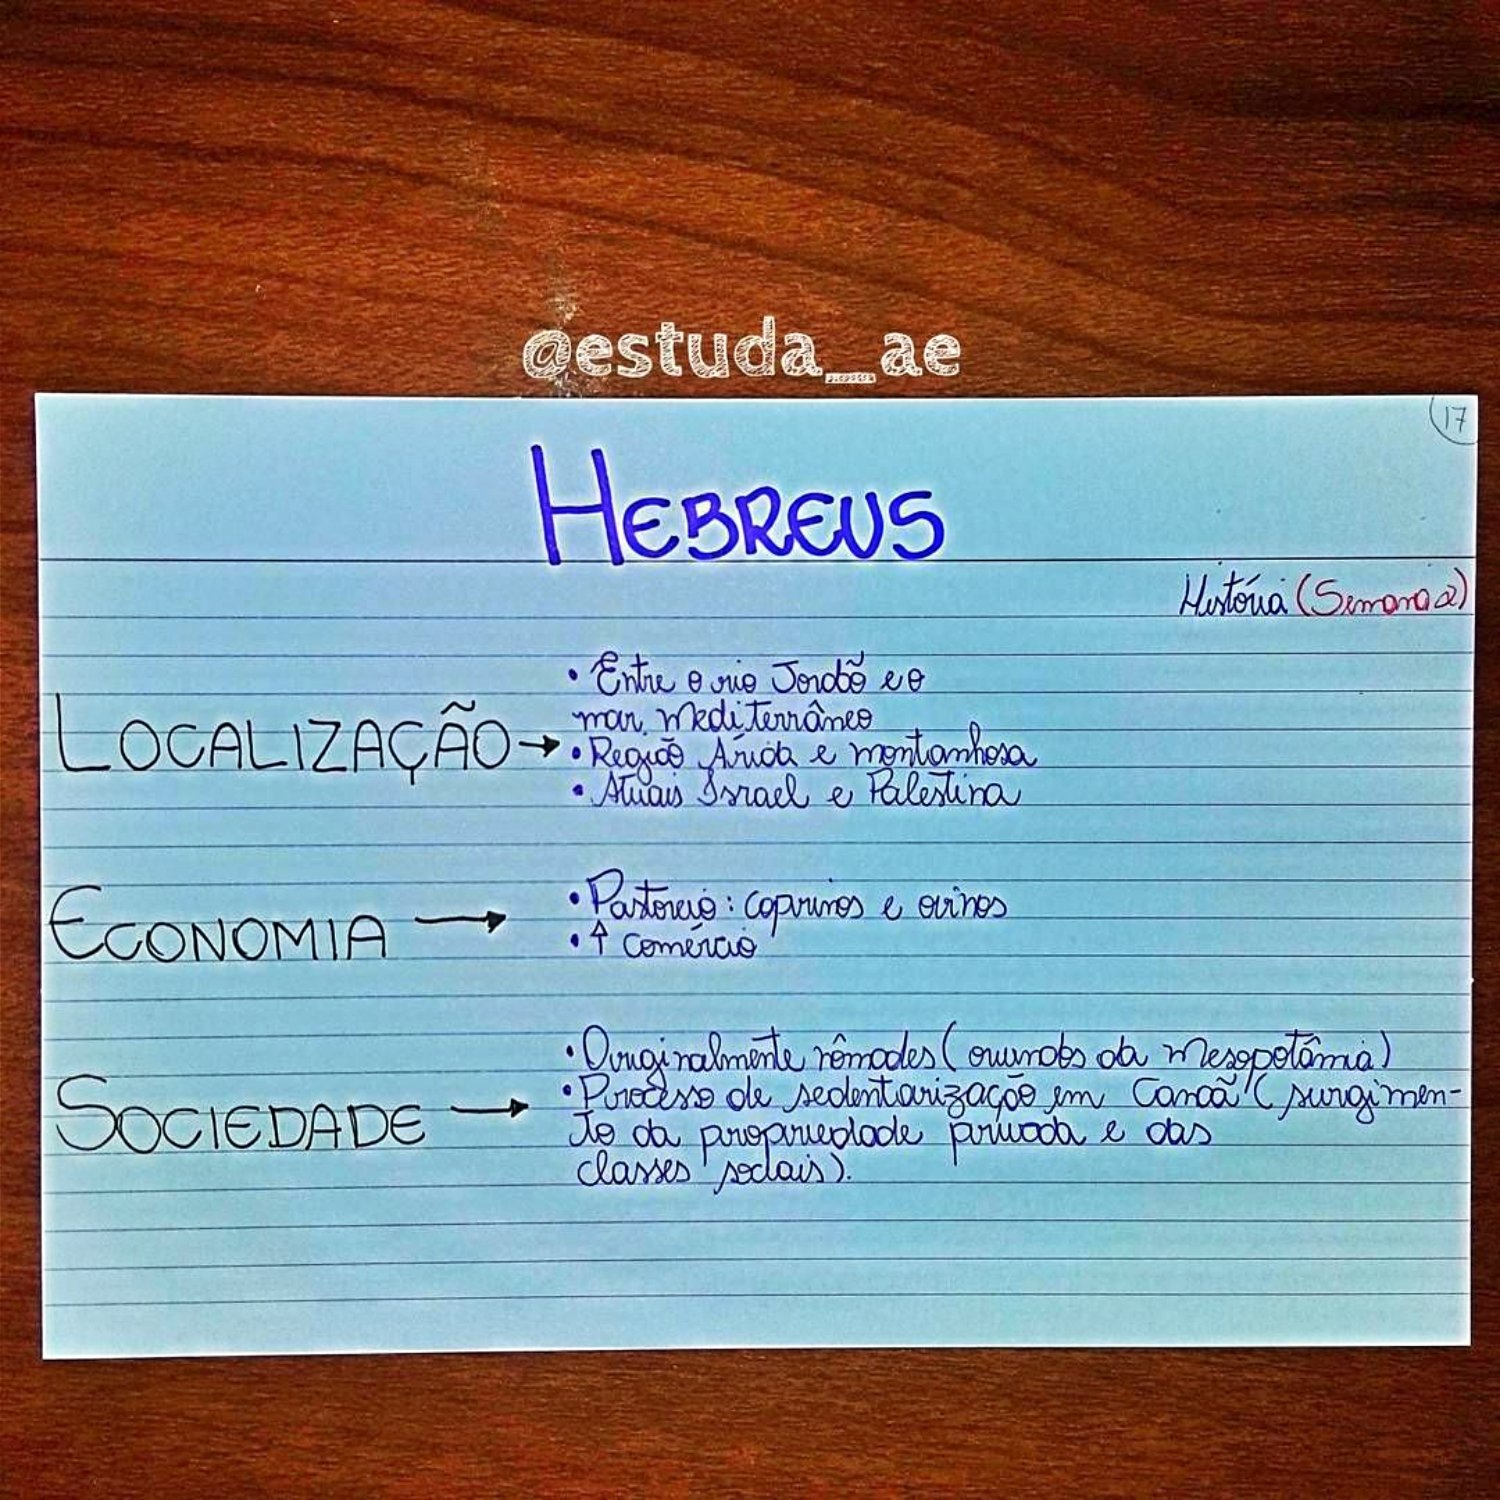 @estuda__ae
17
HEBREUS
História (Semana 2)
• Entre o rio Jordão e o
mar Mediterrâneo
LOCALIZAÇÃO →
• Região Árida e montanhosa
• Atuais Israel e Palestina
ECONOMIA →
• Pastoreio: caprinos e ovinos
• ↑ comércio
SOCIEDADE →
• Originalmente nômades (oriundos da Mesopotâmia)
• Processo de sedentarização em Canaã (surgimen-
to da propriedade privada e das
classes sociais).